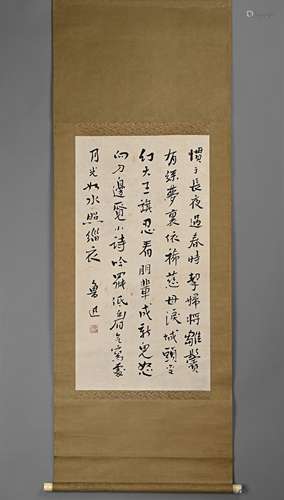 慣于長夜過春時挈婦將雛鬢
有絲夢裏依稀慈母淚城頭變
幻大王旗忍看朋輩成新鬼怒
向刀邊覓小詩吟罷低眉无寫處
月光如水照緇衣
魯迅